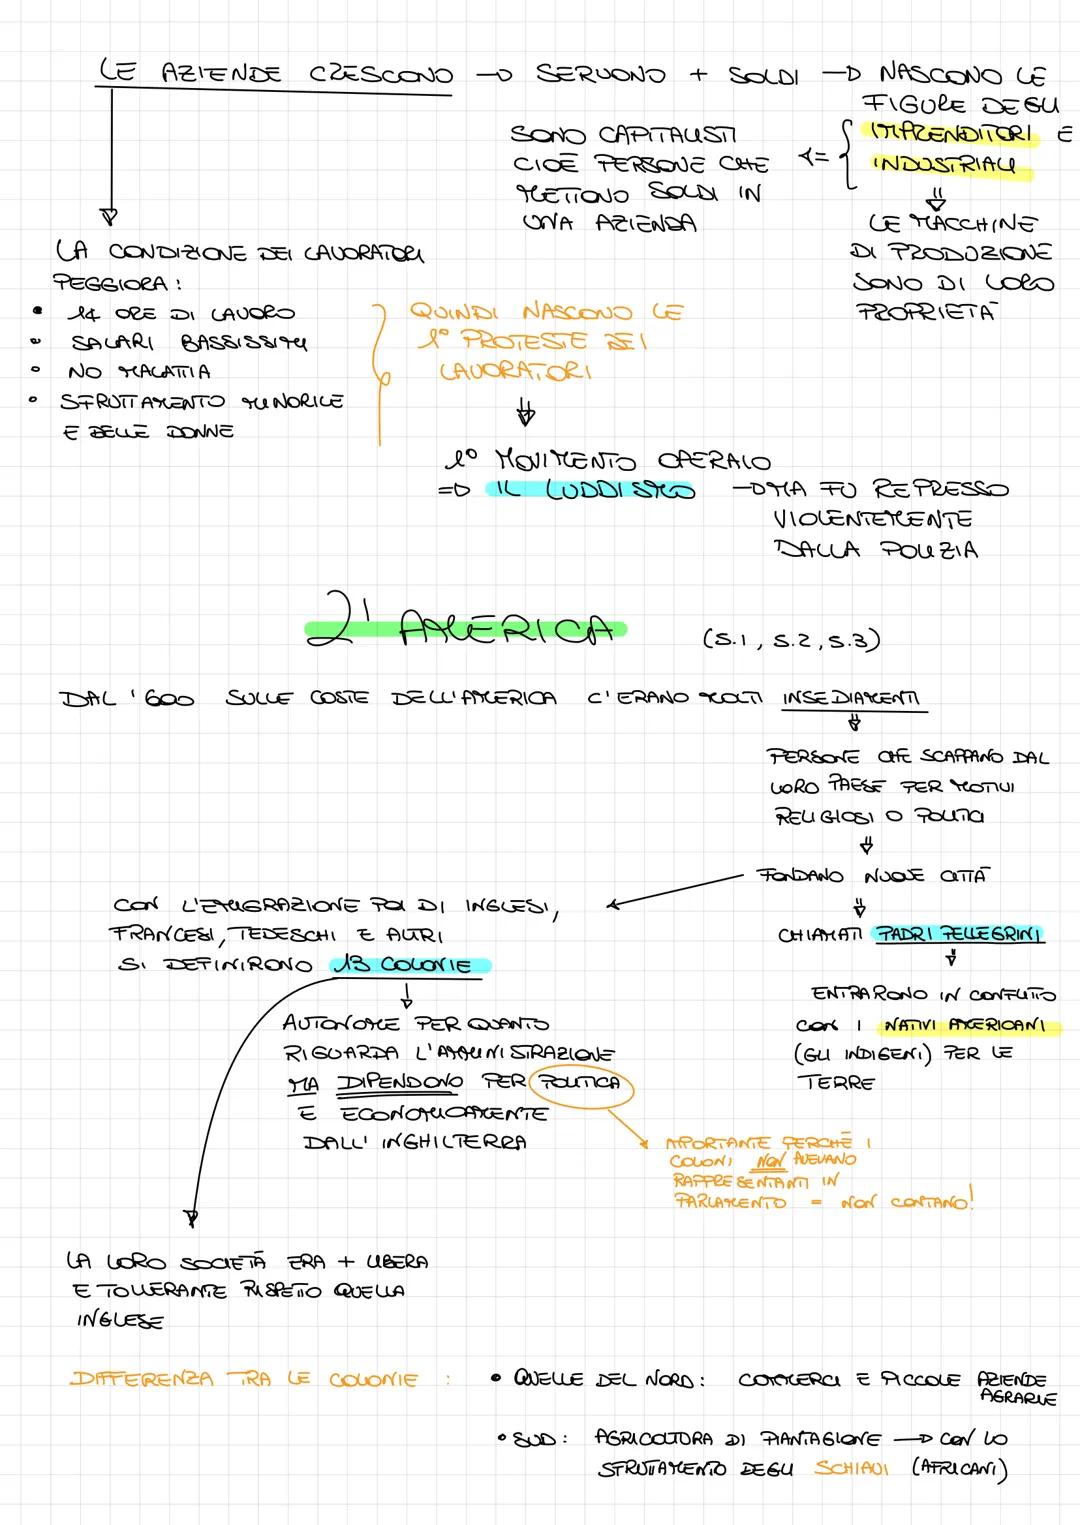 LE AZIENDE CRESCONO → SERVONO + SOLDI → NASCONO LE
FIGURE DEGLI
IMPRENDITORI E
INDUSTRIALI
SONO CAPITALISTI
CIOÈ PERSONE CHE
METTONO SOLDI IN
UNA AZIENDA
LE MACCHINE
DI PRODUZIONE
SONO DI LORO
PROPRIETÀ
LA CONDIZIONE DEI LAVORATORI
PEGGIORA:
• 14 ORE DI LAVORO
• SALARI BASSISSIMI
• NO MALATTIA
• SFRUTTAMENTO MINORILE
E DELLE DONNE
QUINDI NASCONO LE
1° PROTESTE DEI
LAVORATORI
1° MOVIMENTO OPERAIO
⇒ IL LUDDISMO → MA FU REPRESSO
VIOLENTEMENTE
DALLA POLIZIA
2' AMERICA
(S.1, S.2, S.3)
DAL '600 SULLE COSTE DELL'AMERICA C'ERANO MOLTI INSEDIAMENTI
PERSONE CHE SCAPPANO DAL
LORO PAESE PER MOTIVI
RELIGIOSI O POLITICI
FONDANO NUOVE CITTÀ
CHIAMATI PADRI PELLEGRINI
ENTRARONO IN CONFLITTO
CON I NATIVI AMERICANI
(GLI INDIGENI) PER LE
TERRE
CON L'EMIGRAZIONE POI DI INGLESI,
FRANCESI, TEDESCHI E ALTRI
SI DEFINIRONO 13 COLONIE
AUTONOME PER QUANTO
RIGUARDA L'AMMINISTRAZIONE
MA DIPENDONO PER POLITICA
E ECONOMICAMENTE
DALL'INGHILTERRA
MPORTANTE PERCHÈ I
COLONI NON AVEVANO
RAPPRESENTANTI IN
PARLAMENTO = NON CONTANO!
LA LORO SOCIETÀ ERA + LIBERA
E TOLLERANTE RISPETTO QUELLA
INGLESE
DIFFERENZA TRA LE COLONIE :
• QUELLE DEL NORD: COMMERCI E PICCOLE AZIENDE
AGRARIE
• SUD: AGRICOLTURA DI PIANTAGIONE → CON LO
STRUTTAMENTO DEGLI SCHIAVI (AFRICANI)